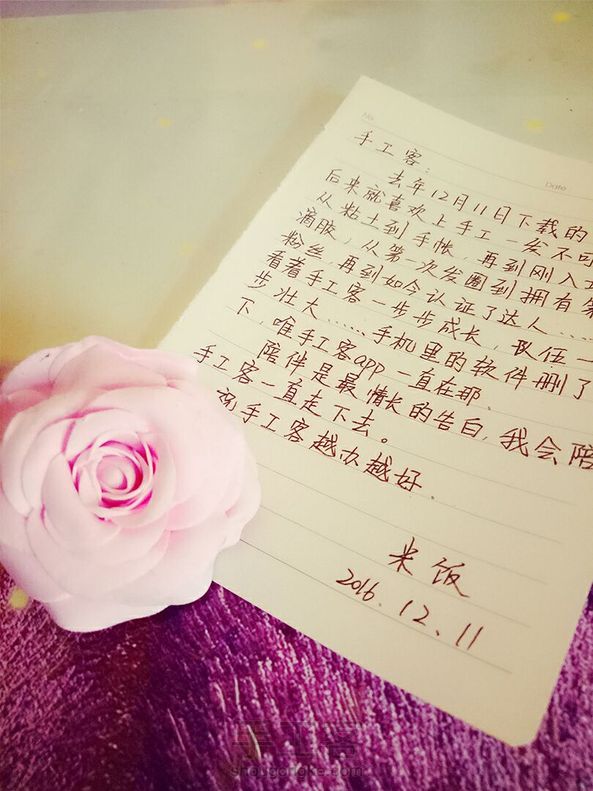 No
Date
手工客：
去年12月11日下载的
后来就喜欢上手工一发不可
从粘土到手帐，再到刚入
滴胶，从第一次发圈到拥有第
粉丝，再到如今认证了达人……
看着手工客一步步成长，队伍一
步壮大……手机里的软件删了
下，唯手工客app一直在那、
陪伴是最情长的告白，我会陪
手工客一直走下去。
祝手工客越办越好、
米饭
2016.12.11
手工客
shougongke.com